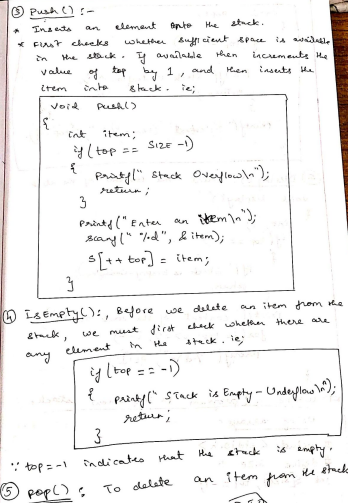 ③ Push() :-
* Inserts an element onto the stack.
* First checks whether sufficient space is available
in the stack. If available then increments the
value of top by 1, and then inserts the
item into stack. ie;
Void Push()
{
int item;
if (top == SIZE -1)
{
Printf(" Stack Overflow\n");
return;
}
Printf("Enter an item\n");
scanf("%d", &item);
S[++top] = item;
}
④ IsEmpty():, Before we delete an item from the
stack, we must first check whether there are
any element in the stack. ie;
if (top == -1)
{
printf(" STack is Empty - Underflow\n");
return;
}
∵ top = -1 indicates that the stack is empty.
⑤ pop() : To delete an item from the stack